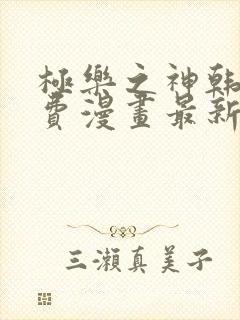 極樂之神韩
費漫畫最新
三瀨真美子